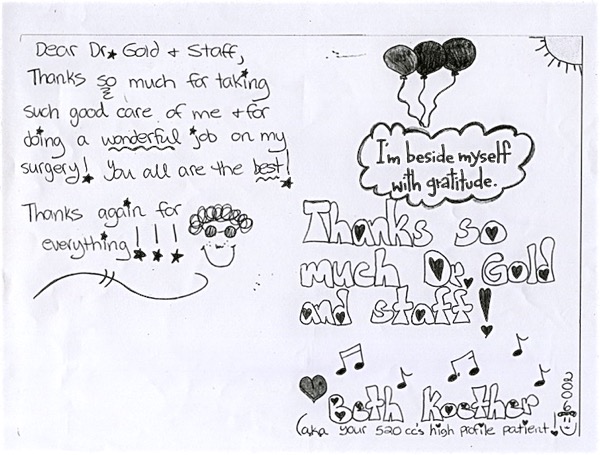 Dear Dr. Gold + Staff,
Thanks so much for taking
such good care of me + for
doing a wonderful job on my
surgery! You all are the best!
Thanks again for
everything!!!
I'm beside myself
with gratitude.
Thanks so
much Dr. Gold
and staff!
Beth Koether
(aka your 520 cc's high profile patient!